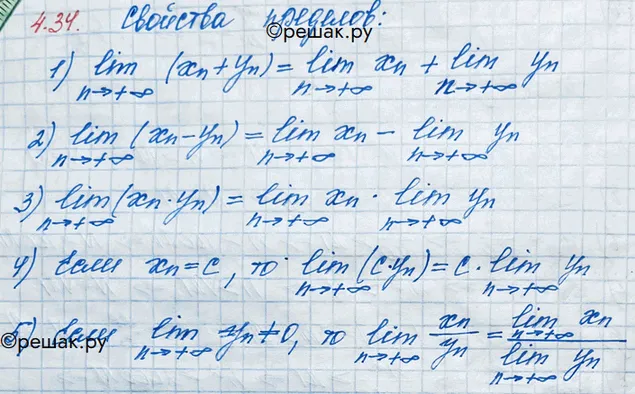 4.34. Свойства пределов:
©решак.ру
1) lim (xn + yn) = lim xn + lim yn
n→+∞ n→+∞ n→+∞
2) lim (xn − yn) = lim xn − lim yn
n→+∞ n→+∞ n→+∞
3) lim (xn · yn) = lim xn · lim yn
n→+∞ n→+∞ n→+∞
4) Если xn = c, то lim (c·yn) = c · lim yn
n→+∞ n→+∞
5) Если lim yn ≠ 0, то lim xn/yn = lim xn / lim yn
n→+∞ n→+∞ n→+∞ n→+∞
©решак.ру
©решак.ру